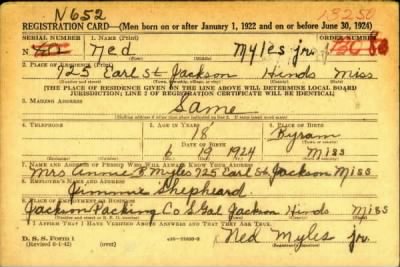 N652
REGISTRATION CARD—(Men born on or after January 1, 1922 and on or before June 30, 1924)
SERIAL NUMBER 1. NAME (Print) ORDER NUMBER
N Ned Myles jr.
(First) (Middle) (Last)
2. PLACE OF RESIDENCE (Print)
725 Earl St Jackson Hinds Miss
[THE PLACE OF RESIDENCE GIVEN ON THE LINE ABOVE WILL DETERMINE LOCAL BOARD
JURISDICTION; LINE 2 OF REGISTRATION CERTIFICATE WILL BE IDENTICAL]
3. MAILING ADDRESS
Same
4. TELEPHONE 5. AGE IN YEARS 6. PLACE OF BIRTH
18 Byram
DATE OF BIRTH
6 19 1924 Miss
7. NAME AND ADDRESS OF PERSON WHO WILL ALWAYS KNOW YOUR ADDRESS
Mrs Annie B Myles 725 Earl St Jackson Miss
8. EMPLOYER'S NAME AND ADDRESS
Jimmie Shepheard
9. PLACE OF EMPLOYMENT OR BUSINESS
Jackson Packing Co S Gal Jackson Hinds Miss
I AFFIRM THAT I HAVE VERIFIED ABOVE ANSWERS AND THAT THEY ARE TRUE.
D. S. S. Form 1
(Revised 6-1-42)
Ned Myles jr.